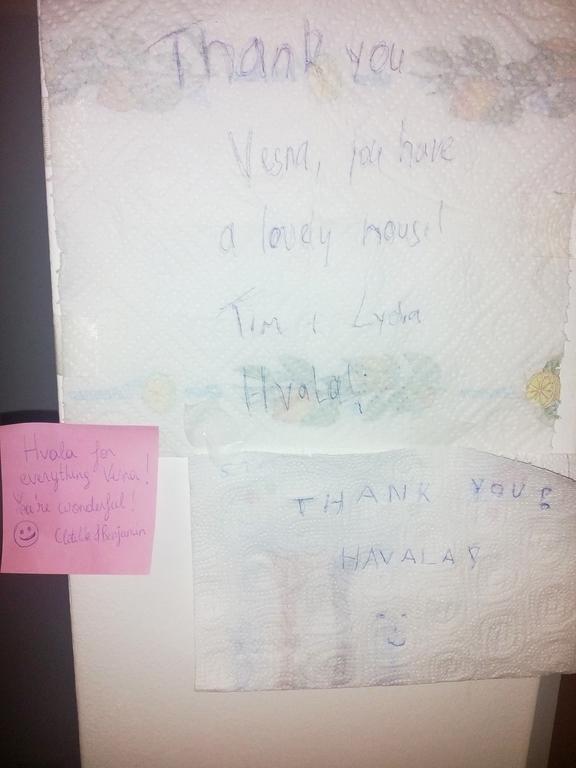 Thank you
Vesna, you have
a lovely house!
Tim + Lydia
Hvala!
Hvala for
everything Vesna!
You're wonderful!
Clotilde & Benjamin
THANK YOU!
HAVALA!